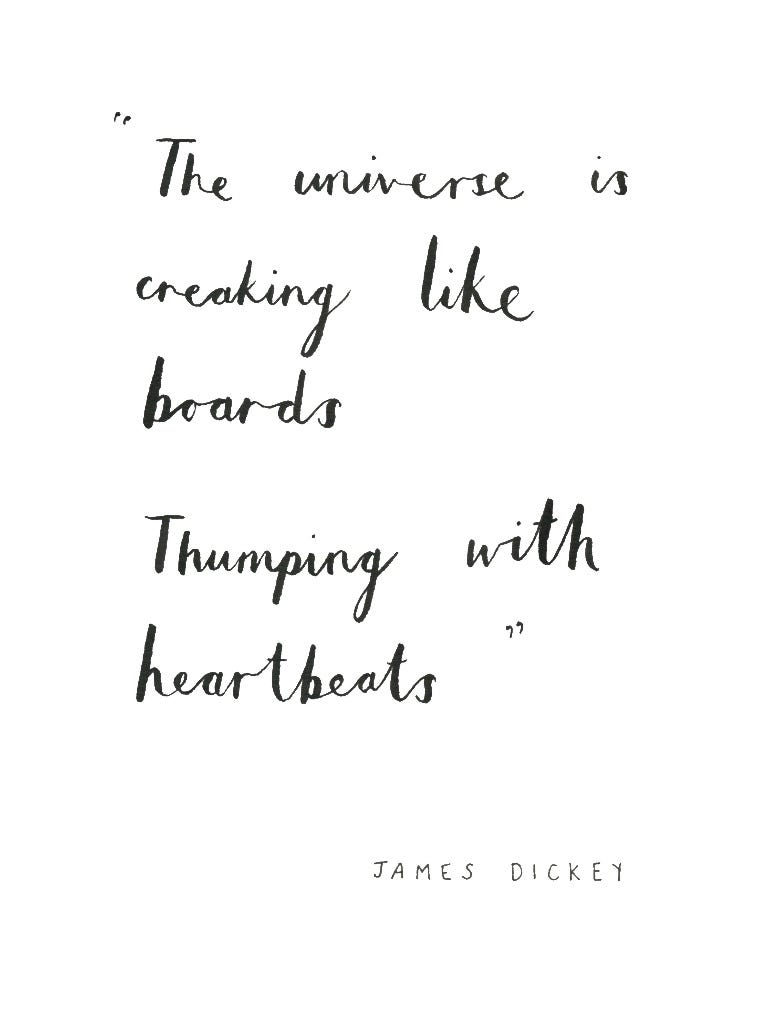 “The universe is
creaking like
boards
Thumping with
heartbeats”
JAMES DICKEY